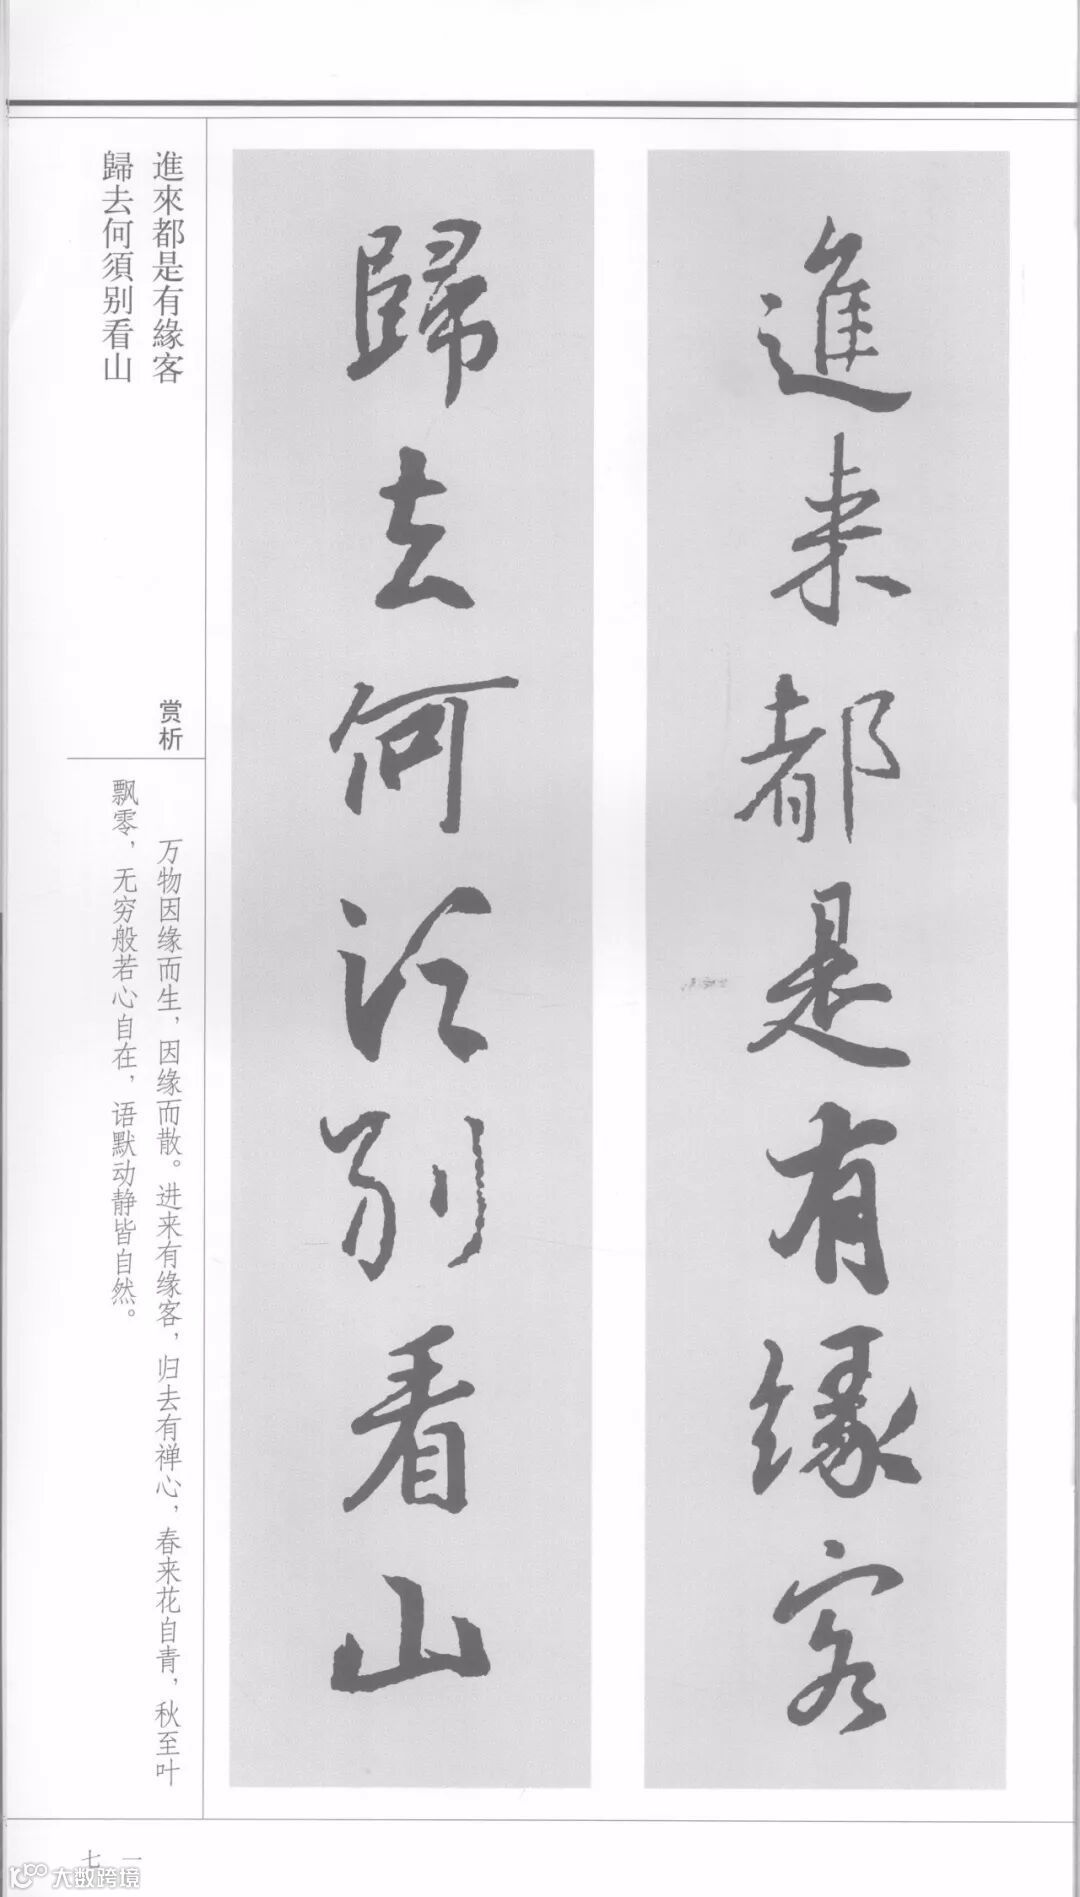 進来都是有緣客
歸去何須别看山
進來都是有緣客
歸去何須别看山
赏析
万物因缘而生，因缘而散。进来有缘客，归去有禅心，春来花自青，秋至叶
飘零，无穷般若心自在，语默动静皆自然。
七一
大数跨境